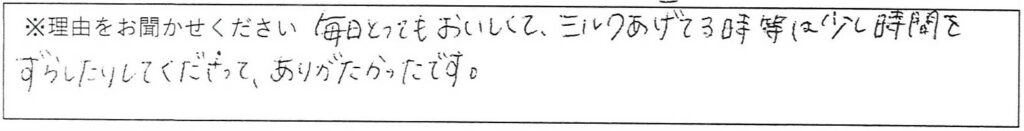 ※理由をお聞かせください 毎日とってもおいしくて、ミルクあげてる時等は少し時間を
ずらしたりしてくださって、ありがたかったです。